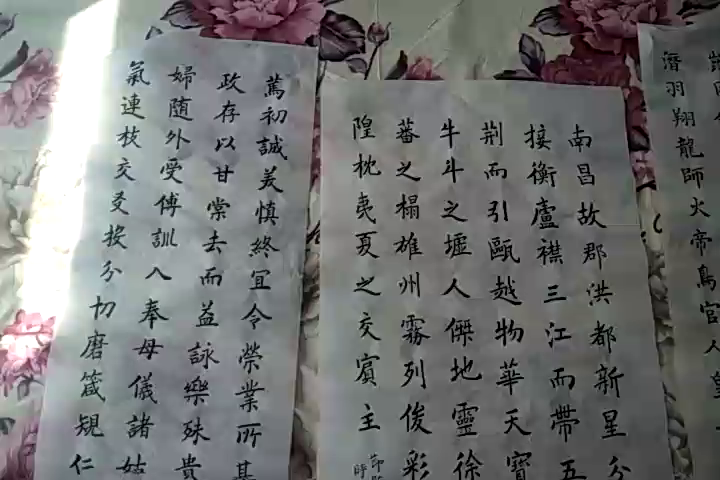 濳羽翔龍師火帝鳥官人皇
南昌故郡洪都新星分
接衡廬襟三江而帶五
荆而引甌越物華天寶
牛斗之墟人傑地靈徐
蕃之榻雄州霧列俊彩
隍枕夷夏之交賓主
篤初誠美慎終宜令榮業所基
政存以甘棠去而益詠樂殊貴
婦隨外受傅訓入奉母儀諸姑
氣連枝交友投分切磨箴規仁